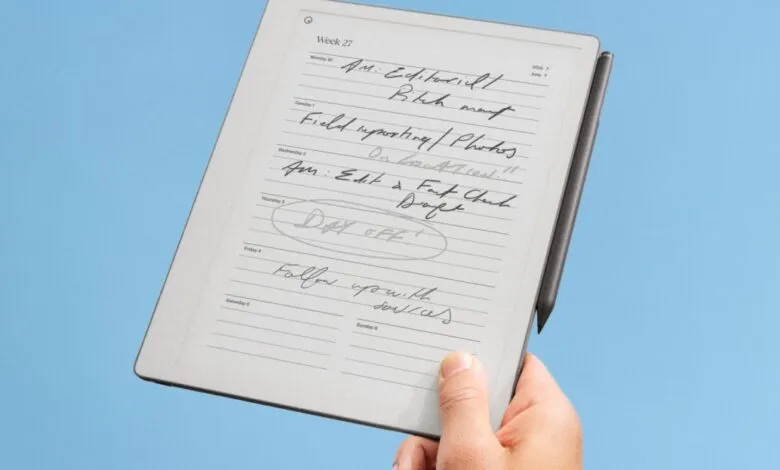 Week 27
Monday 30
AM: Editorial/
Pitch meet
Tuesday 1
Field reporting/Photos
On location!!
Wednesday 2
AM: Edit & Fact Check
Draft
Thursday 3
DAY OFF!
Friday 4
Follow up with
sources
Saturday 5
Sunday 6